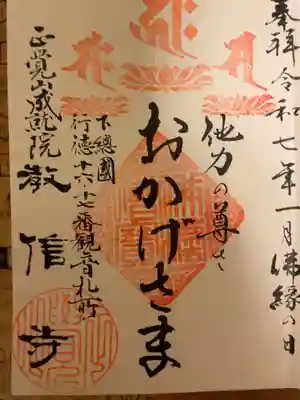 奉拝 令和七年一月佛縁の日
他力の尊さ
おかげさま
下總國
行徳十六・十七番観音札所
正覚山成就院
教信寺